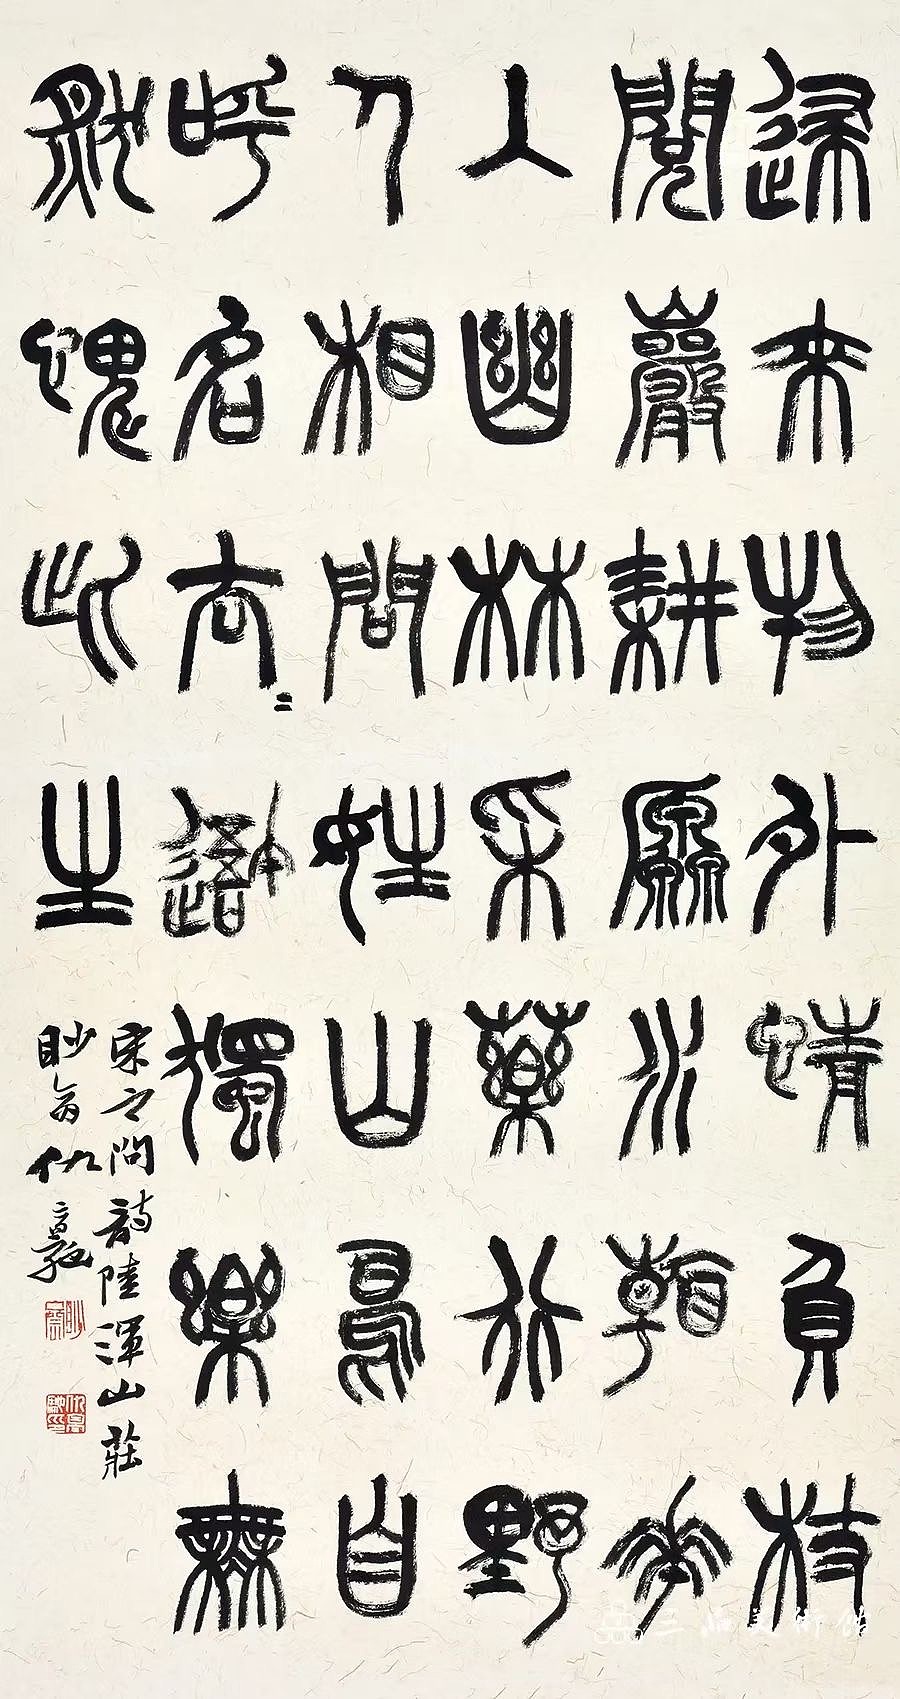 歸來物外情負杖
閱巖耕厵水看華
入幽林采藥行野
人相問姓山鳥自
呼名去〻吾獨樂無
能愧此生
宋之問詩陸渾山莊
眇翁仇
三品美術館